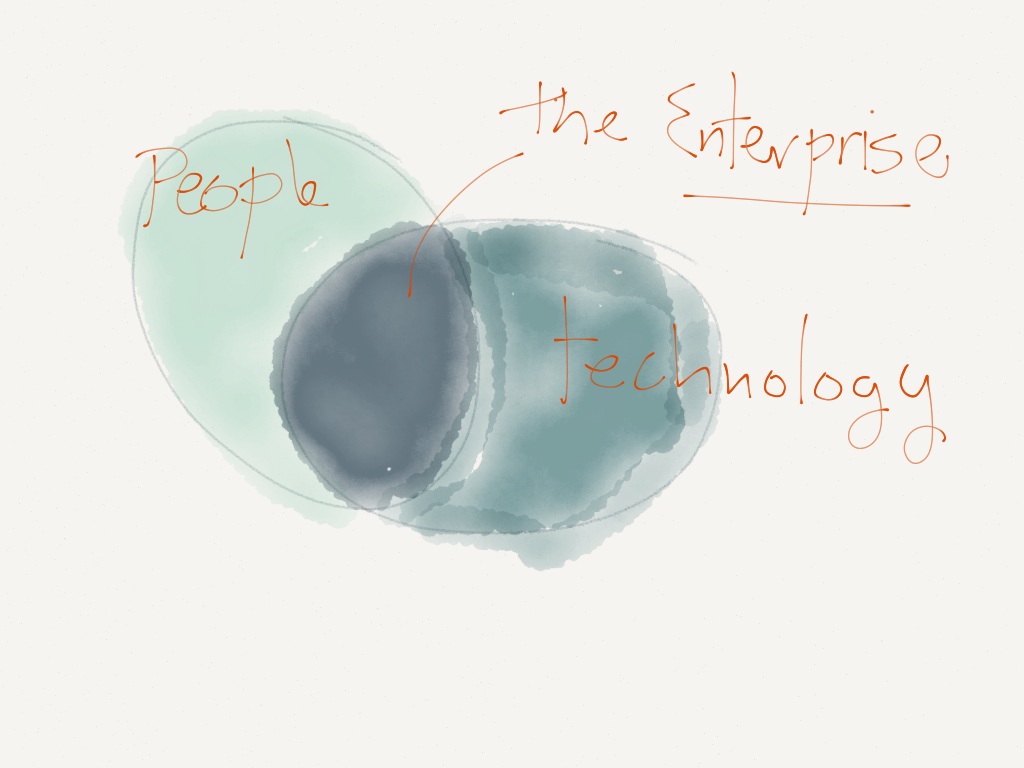 the Enterprise
People
technology